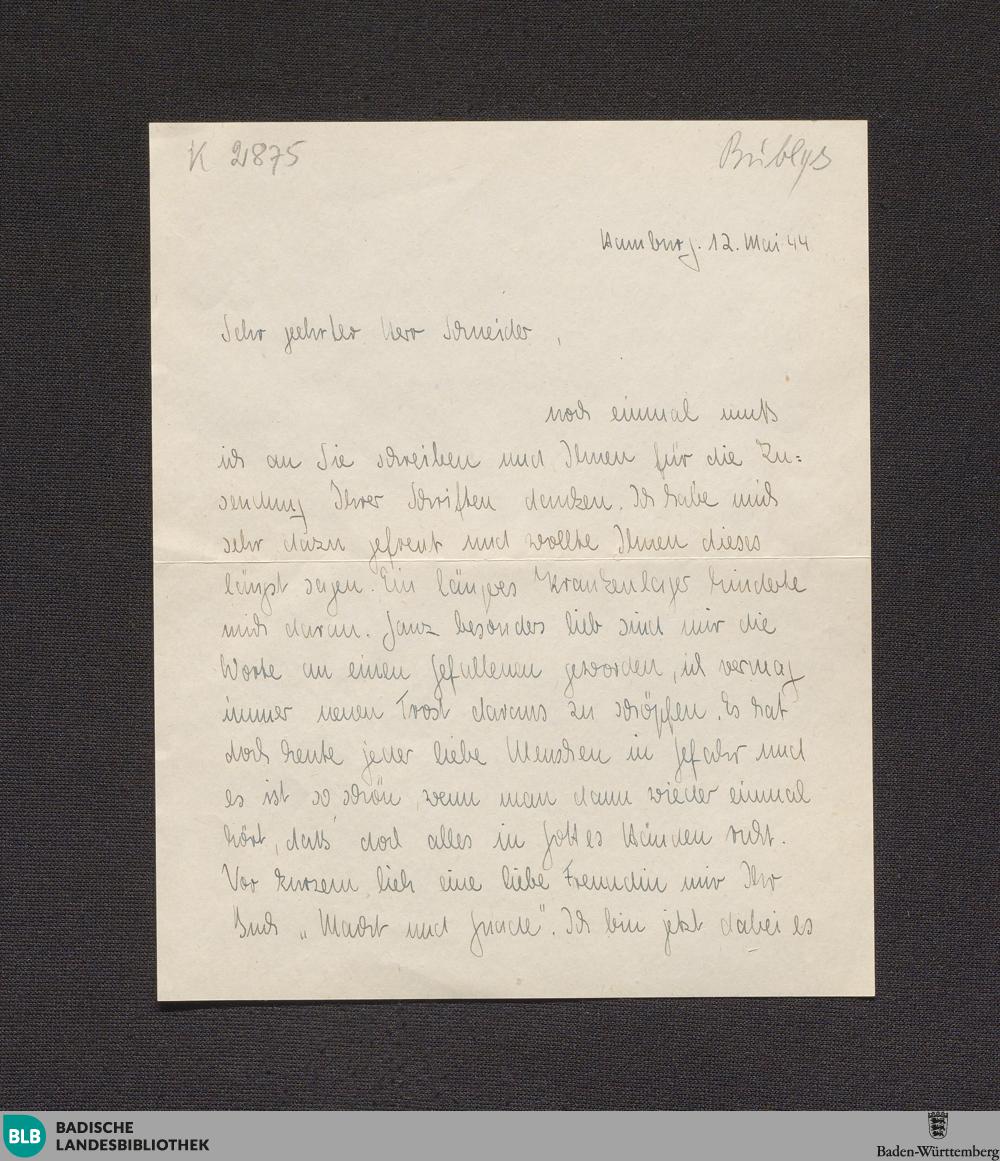 K 2875
Hamburg. 12. Mai 44
Sehr geehrter Herr Schneider,
noch einmal muß
ich an Sie schreiben und Ihnen für die Zu=
sendung Ihrer Schriften danken. Ich habe mich
sehr dazu gefreut und wollte Ihnen dieses
längst sagen. Ein längeres Krankenlager hinderte
mich daran. Ganz besonders lieb sind mir die
Worte an einen Gefallenen geworden, ich vermag
immer neuen Trost daraus zu schöpfen. Es hat
doch heute jeder liebe Menschen in Gefahr und
es ist so schön, wenn man dann wieder einmal
hört, daß doch alles in Gottes Händen ruht.
Vor kurzem lieh eine liebe Freundin mir Ihr
Buch „Macht und Gnade". Ich bin jetzt dabei es
BLB BADISCHE
LANDESBIBLIOTHEK
Baden-Württemberg